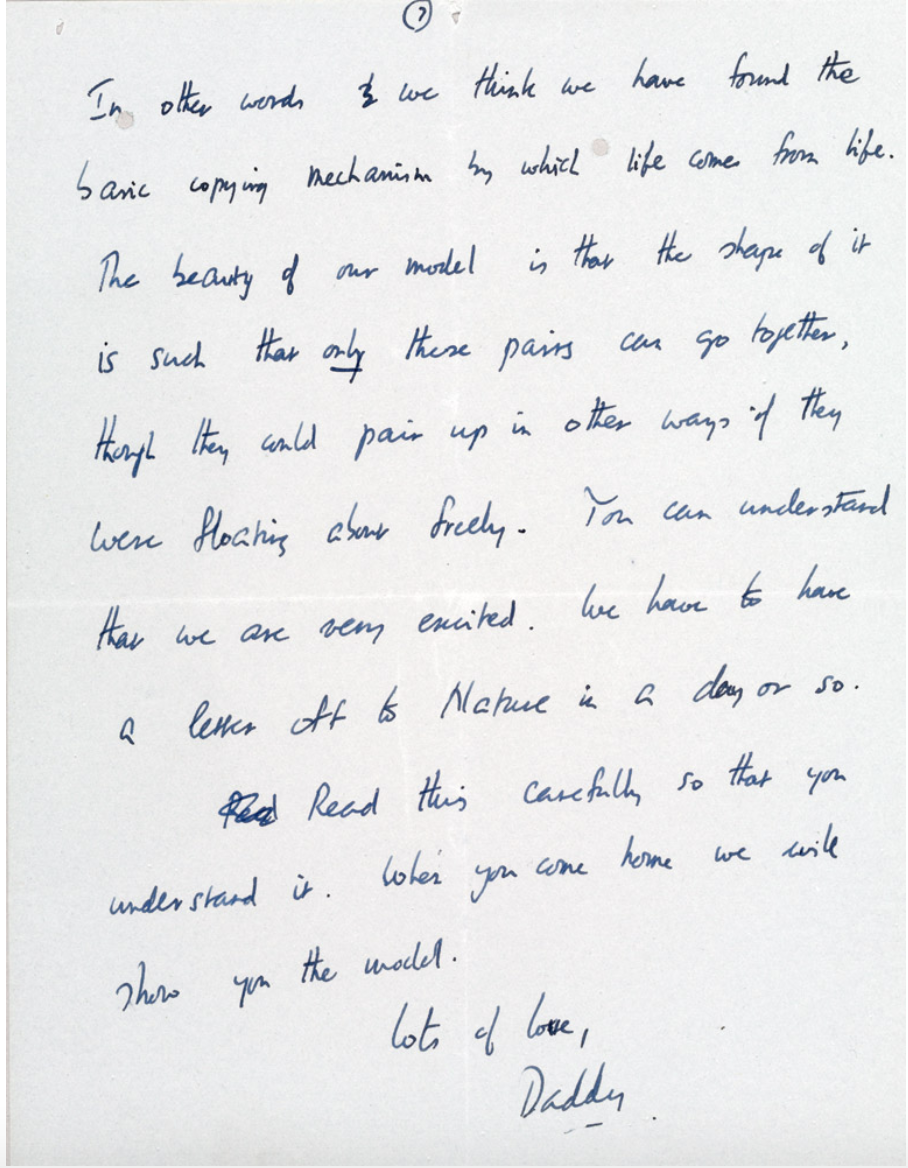 7
In other words we think we have found the
basic copying mechanism by which life comes from life.
The beauty of our model is that the shape of it
is such that only these pairs can go together,
though they could pair up in other ways if they
were floating about freely. You can understand
that we are very excited. We have to have
a letter off to Nature in a day or so.
Read Read this carefully so that you
understand it. When you come home we will
show you the model.
lots of love,
Daddy